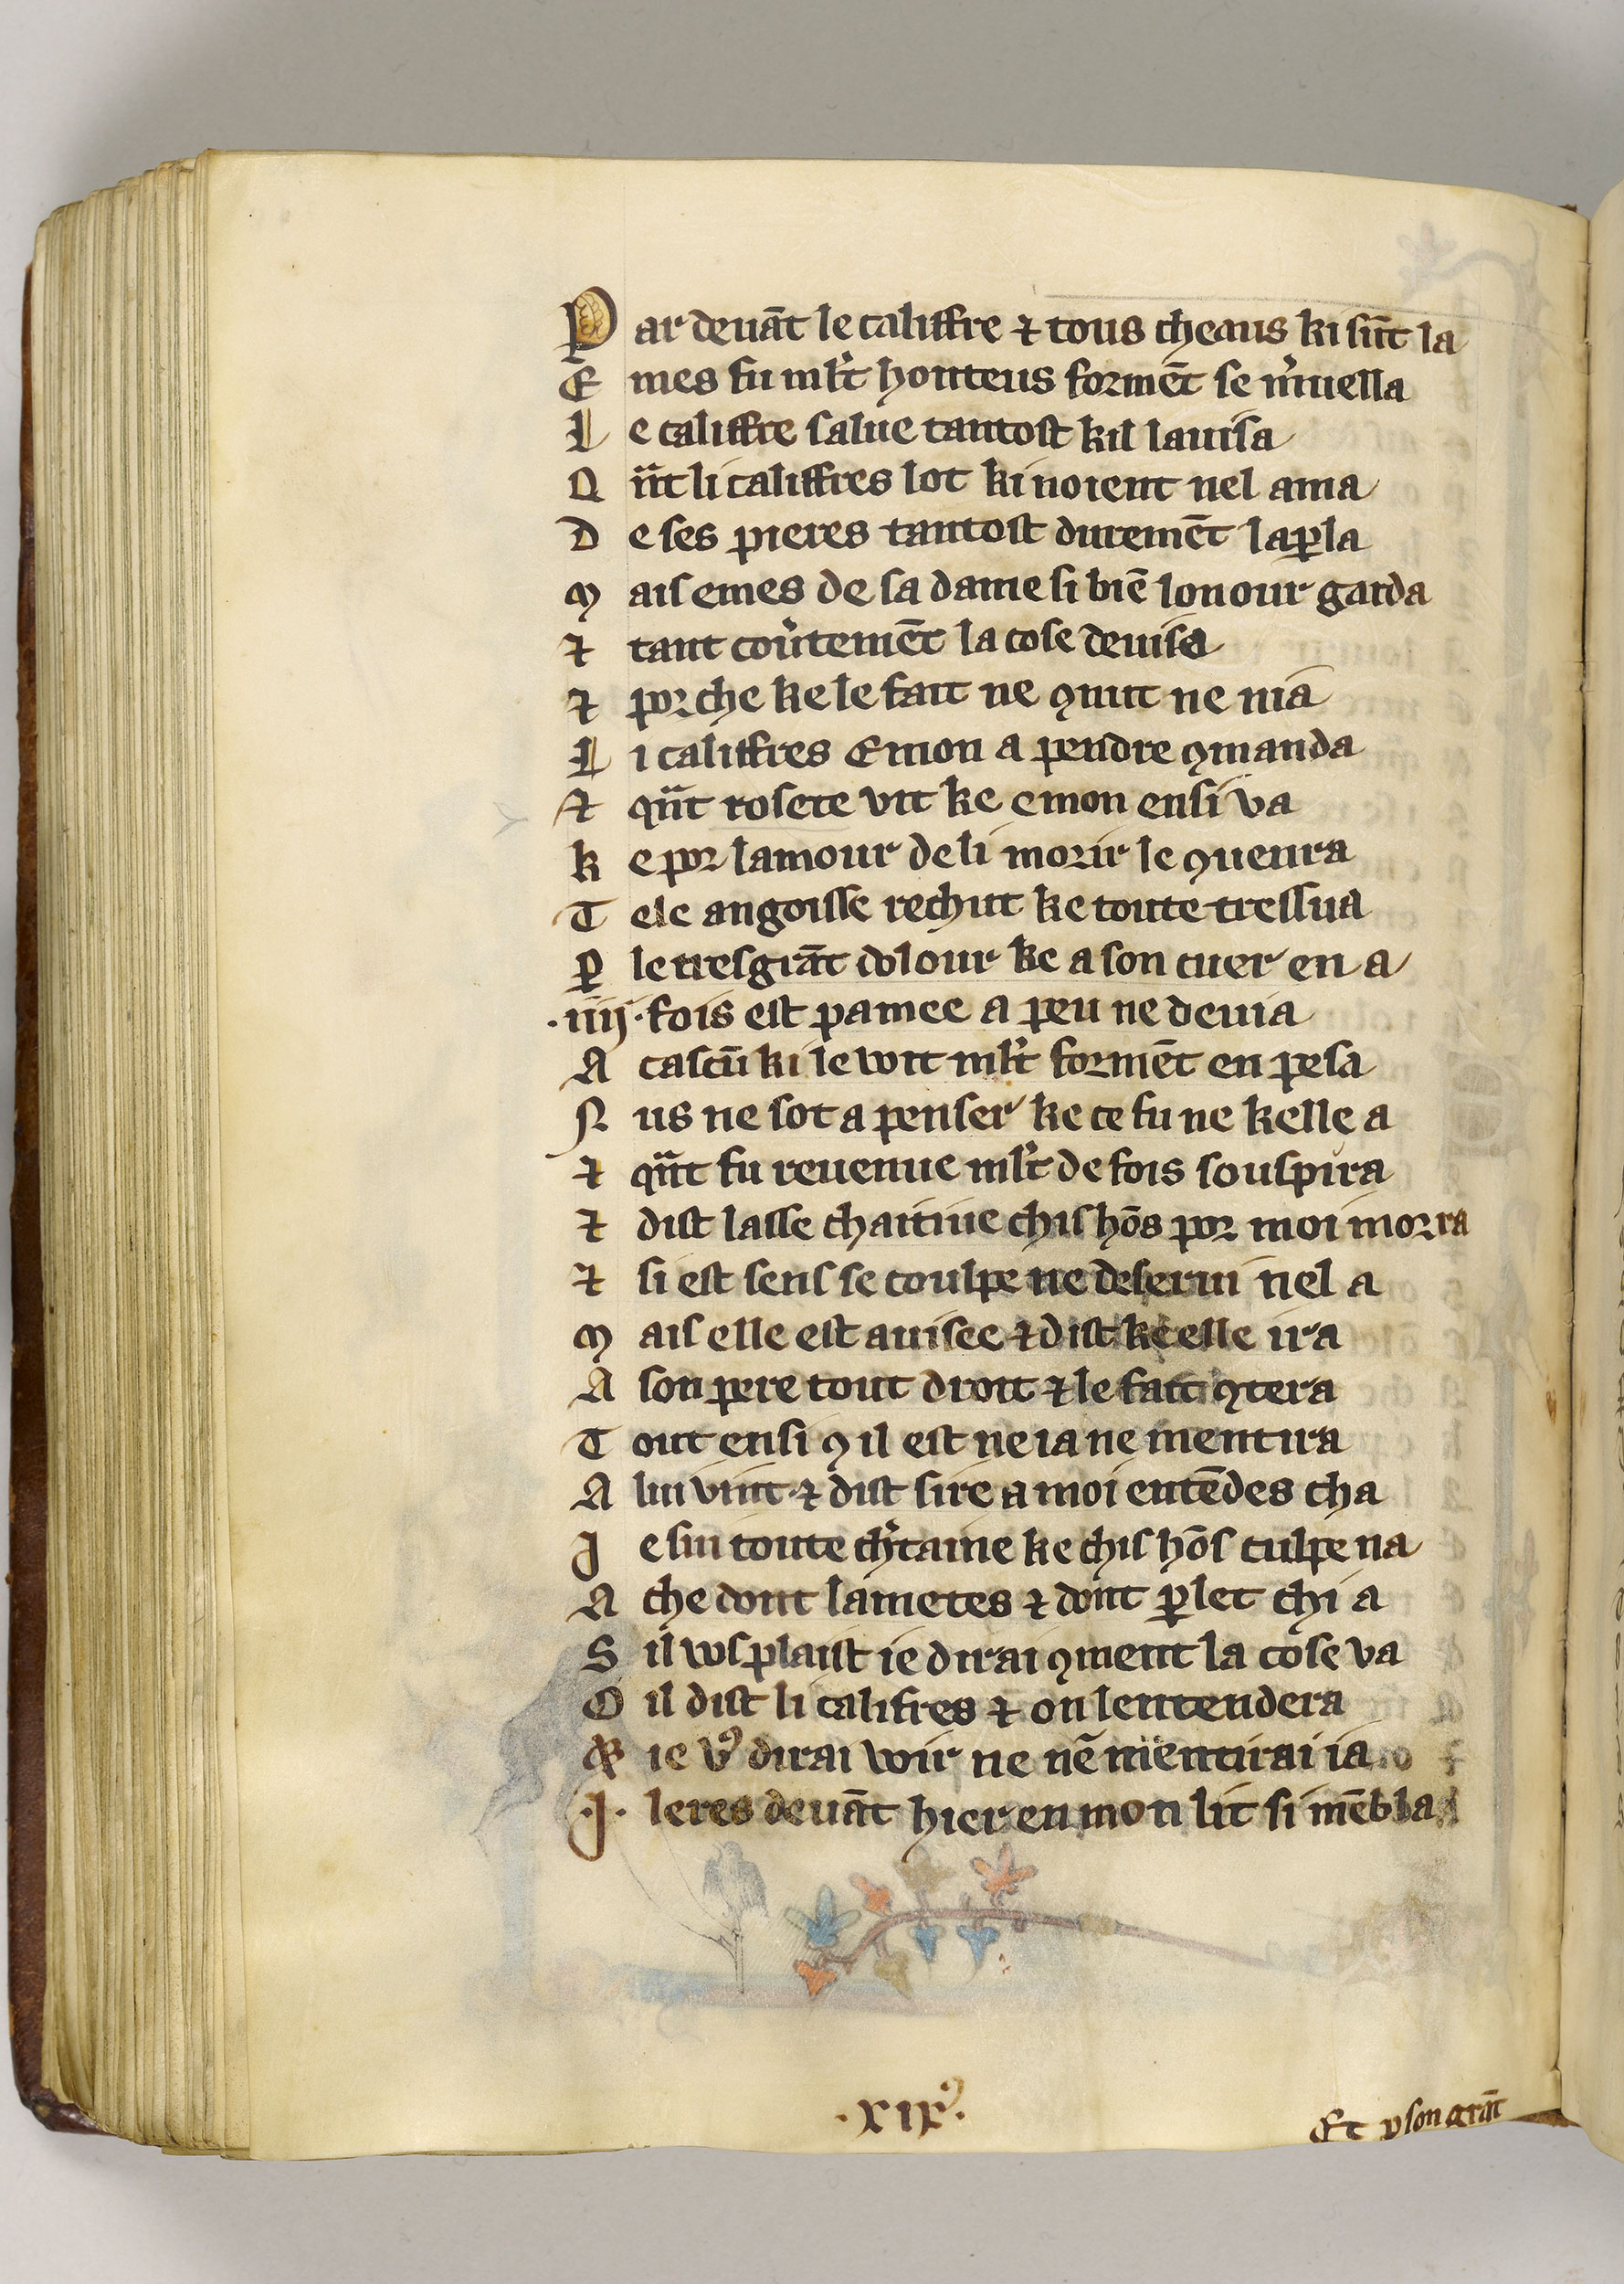 Par deuāt le califfre ⁊ tous cheaus ki sūt la
Emes fu ml't honteus formēt se m'uella
Le califfre salue tantost kil lauisa
Qn̄t li califfres lot ki noient nel ama
De ses pieres tantost duremēt laꝑla
Mais emes de sa dame si biē lonour garda
⁊ tant cou'temēt la cose deuisa
⁊ por che ke le fait ne ꝯnut ne nia
Li califfres Emon a pendre ꝯmanda
⁊ qn̄t rosete vit ke emon ensi va
Ke por lamour de li morir le ꝯuenra
Tele angoisse rechut ke toute tressua
Ꝑ le tresgrāt dolour ke a son cuer en a
·iiij· fois est pamee a peu ne deuia
A cascū ki le voit ml't formēt en pesa
Nus ne sot a penser ke ce fu ne kelle a
⁊ qn̄t fu reuenue ml't de fois souspira
⁊ dist lasse chaitiue chis hōs por moi morra
⁊ si est sens se coulpe ne deserui nel a
Mais elle est auisee ⁊ dist ke elle ira
A son pere tout droit ⁊ le fait ꝯtera
Tout ensi ꝯ il est ne ia ne mentira
A lui vint ⁊ dist sire a moi entēdes cha
Je sui toute ch'taine ke chis hōs culpe na
A che dont lametes ⁊ dont ꝑlet chi a
Sil vos plaist ie dirai ꝯment la cose va
Oil dist li califres ⁊ on lentendera
ie vꝰ dirai voir ne nē mentirai ia
·J· leres deuāt hier en mon lit si mēbla
·xixꝰ·
Et ꝑ son grāt